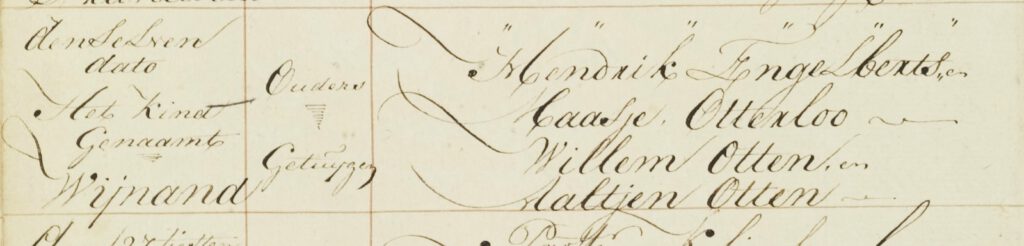 denselven
dato
Het Kind
Genaamt
Wijnand
Ouders
Getuygen
Hendrik Engelberts, en
Maasje Otterloo
Willem Otten, en
Aaltjen Otten